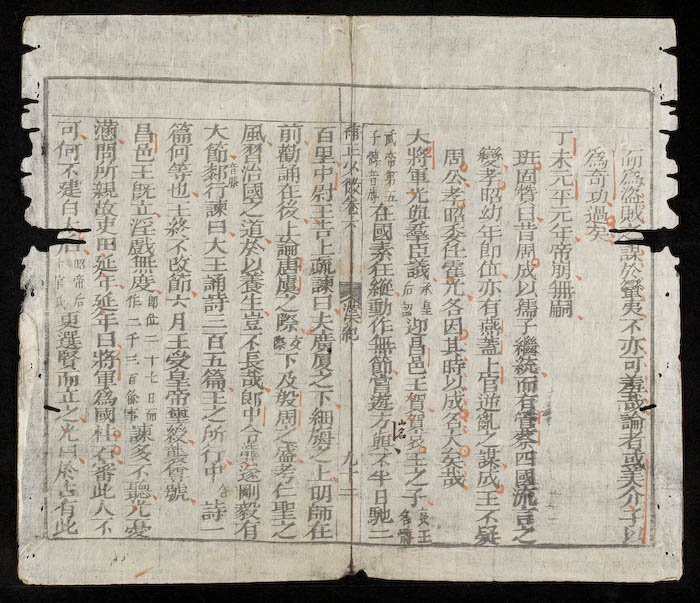 而為盜賊之謀於蠻夷不亦可羞哉論者或美介子以
為奇功過矣
丁未元平元年帝崩無嗣
班固贊曰昔周成以孺子繼統而有管蔡四國流言之
變孝昭幼年即位亦有燕蓋上官逆亂之謀成王不疑
周公孝昭委任霍光各因其時以成名大矣哉
大將軍光與羣臣議承皇后詔迎昌邑王賀賀哀王之子哀王名髆
武帝第五子髆音博在國素狂縱動作無節嘗遊方與不半日馳二
山名
少微卷六 漢 紀 九十二
百里中尉王吉上疏諫曰夫廣厦之下細旃之上明師在
前勸誦在後上論唐虞之際下及殷周之盛考仁聖之
風習治國之道於以養生豈不長哉郎中令龔遂剛毅有
大節行諫曰大王誦詩三百五篇王之所行中詩一
篇何等也王終不改節六月王受皇帝璽綬襲尊號
昌邑王既立淫戲無度即位二十七日而作一千三百餘事諫多不聽光憂
懣問所親故吏田延年延年曰將軍為國柱石審此人不
可何不建白太后昭帝后上官氏更選賢而立之光曰於古有此